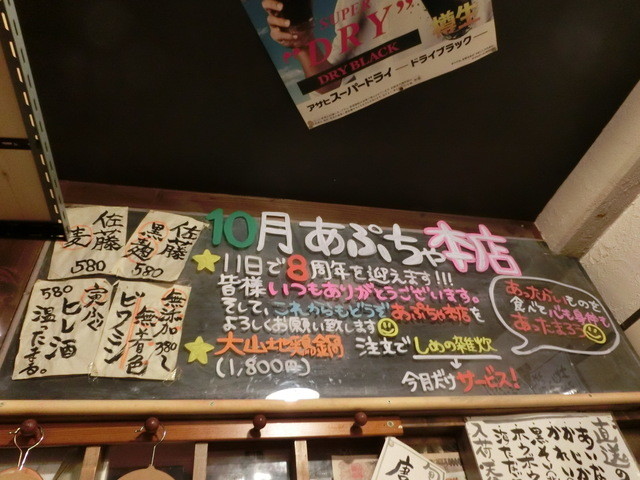 SUPER
"DRY"
DRY BLACK
アサヒスーパードライ ―ドライブラック―
樽生
佐藤
麦
580
佐藤
黒麹
580
実ふぐ
ヒレ酒
580
温ったまる。
無添加
無着色
ビワミン
380〜
10月あぷちゃ本店
11日で8周年を迎えます!!!
皆様いつもありがとうございます。
そして、これからもどうぞあぷちゃ本店を
よろしくお願い致します
大山地鶏鍋 注文で しめの雑炊
(1,800円)
↓
今月だけサービス!
あったかいものを
食べて心も身体も
あったまろう
直送の
入荷